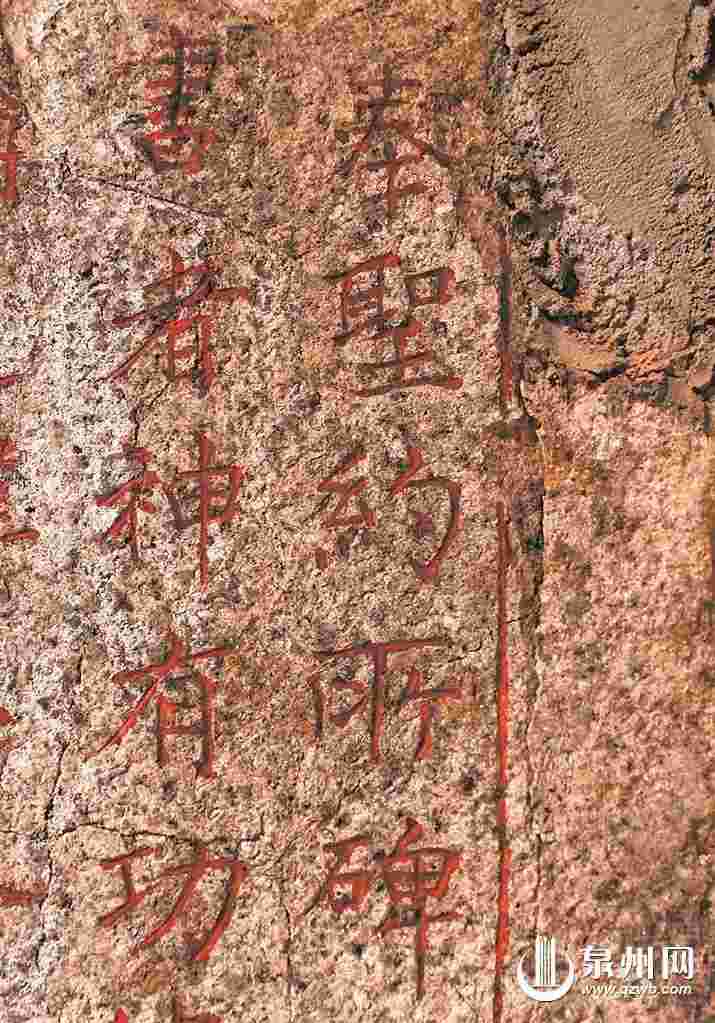 奉聖約所碑
書者神有功
泉州网
www.qzwb.com